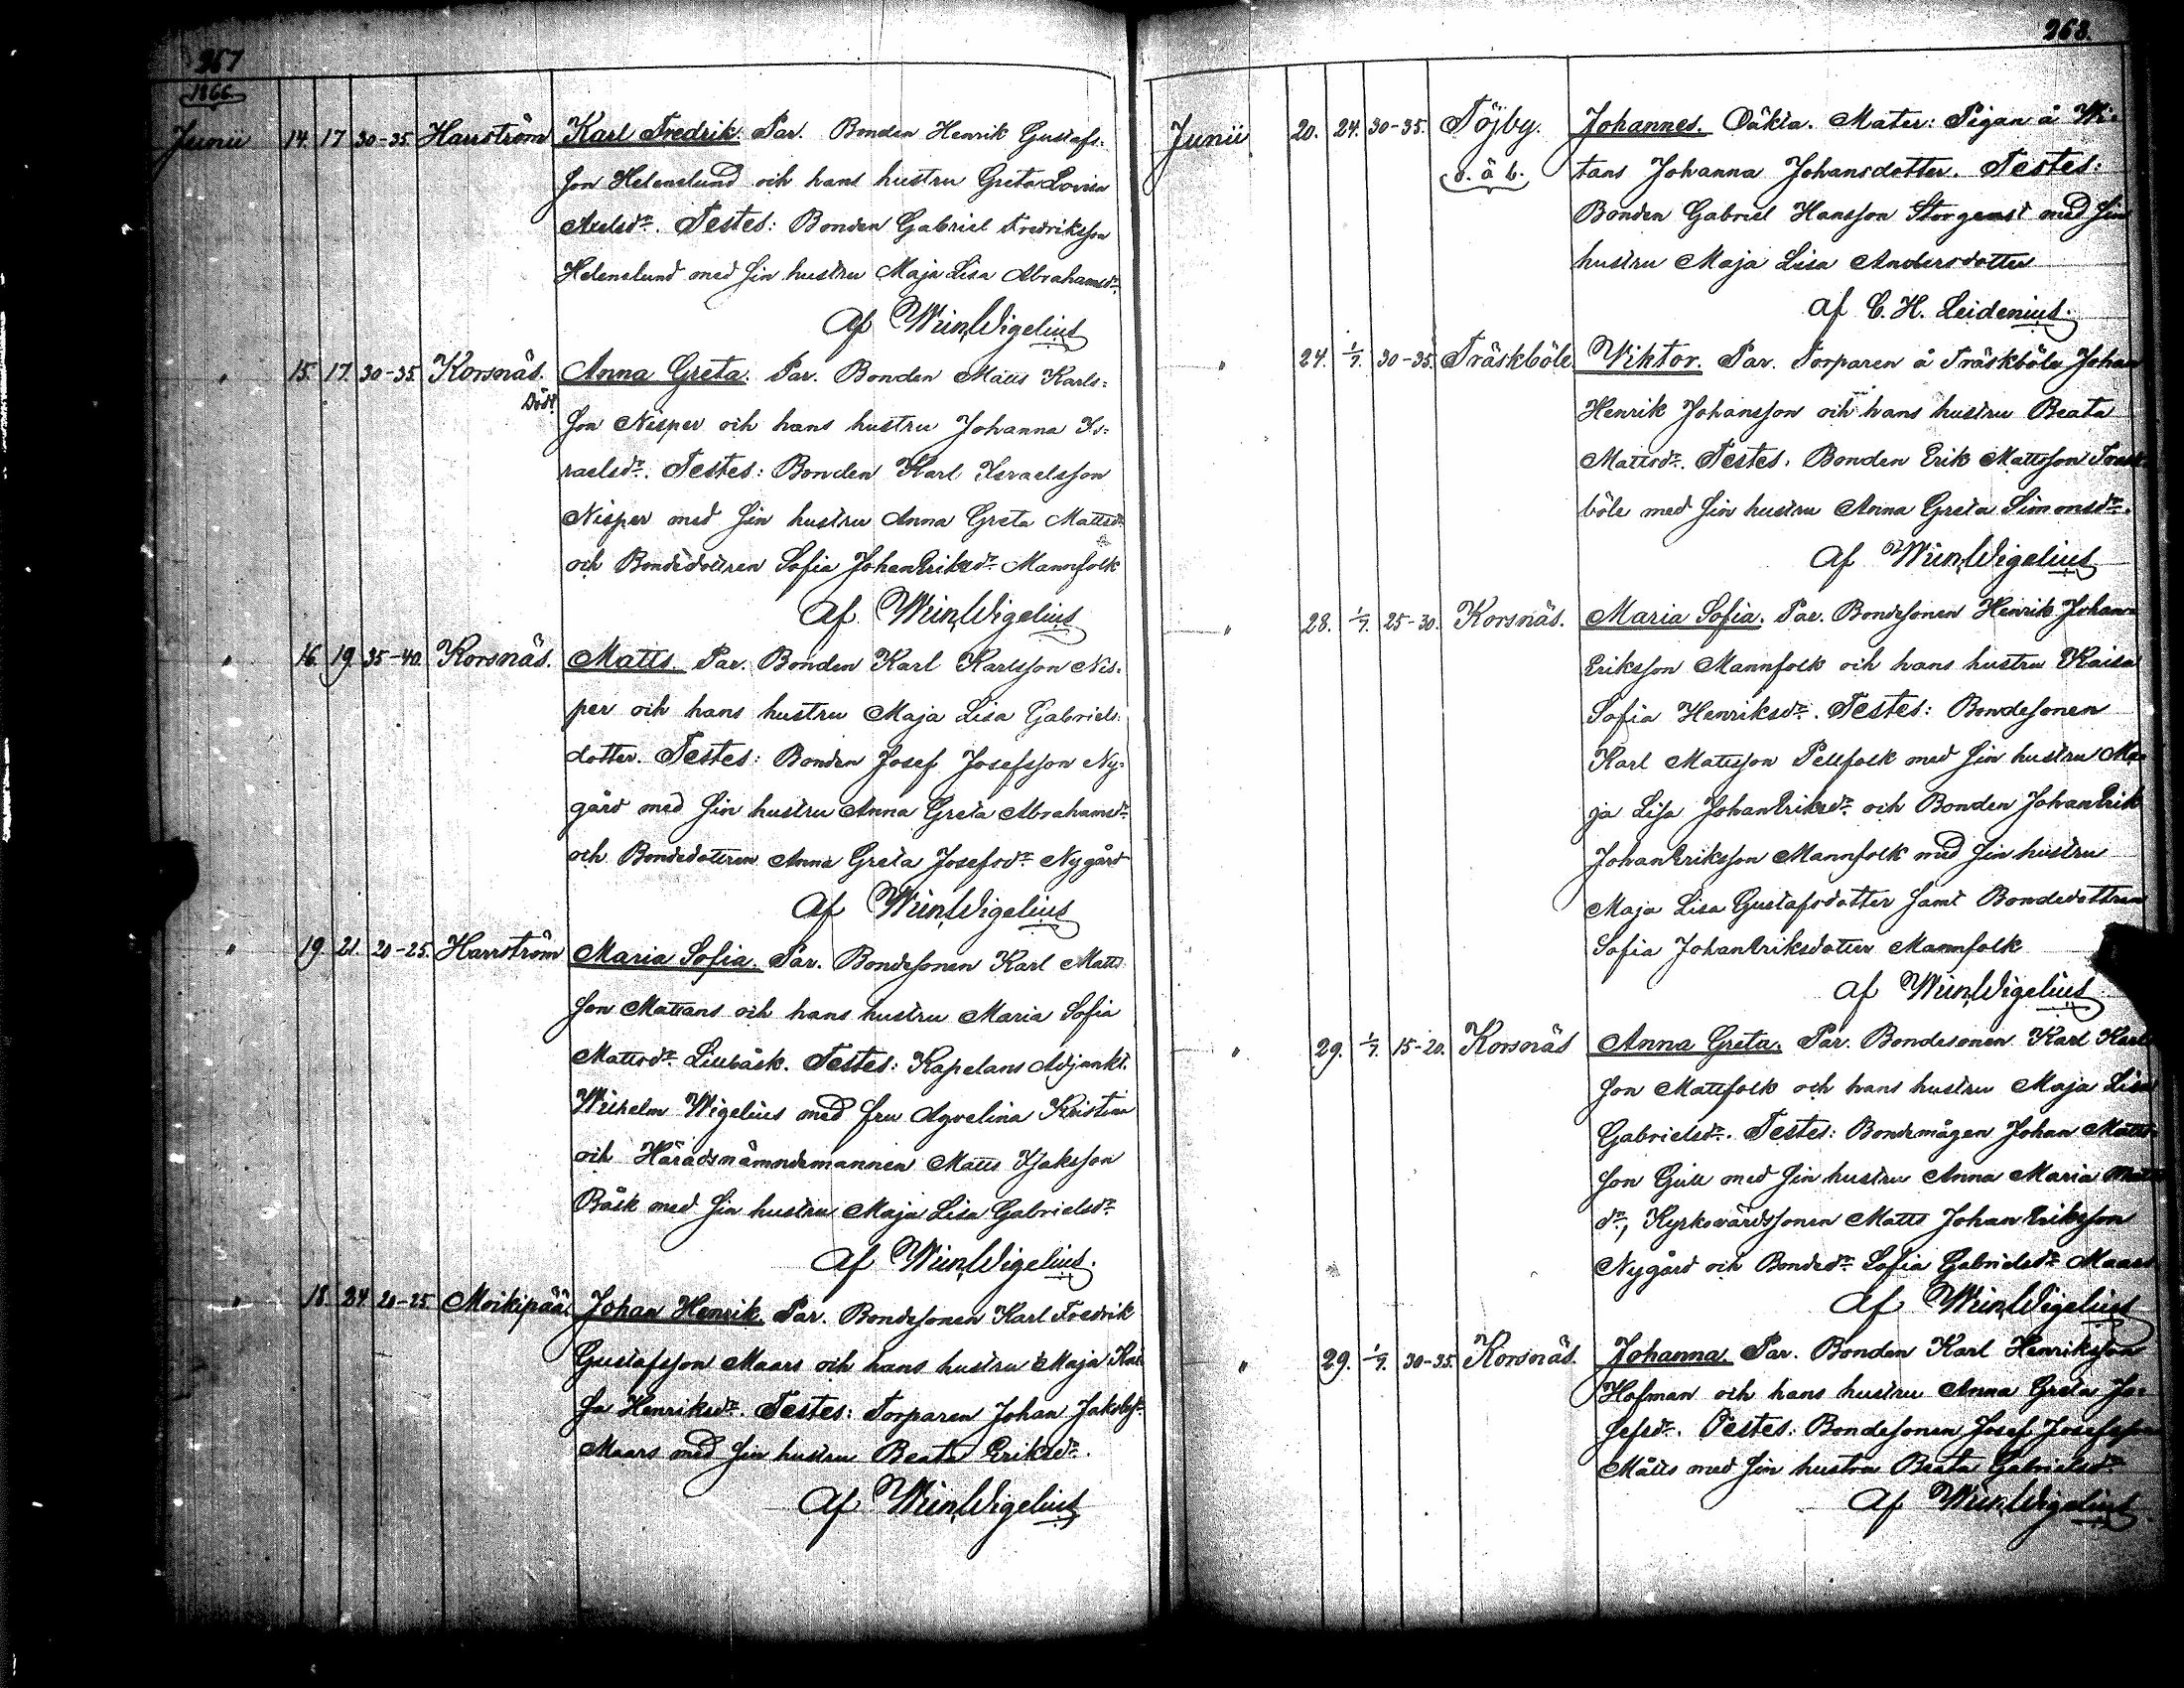 267
1866
Junii 14. 17 30-35. Harrström Karl Fredrik. Par. Bonden Henrik Gustafs-
son Helenelund och hans hustru Greta Lovisa
Axelsdr. Testes: Bonden Gabriel Fredriksson
Helenelund med sin hustru Maja Lisa Abrahamsdr.
Af Wm Wigelius
" 15. 17. 30-35. Korsnäs. Anna Greta. Par. Bonden Matts Karls-
Död!
son Nisper och hans hustru Johanna Is-
raelsdr. Testes: Bonden Karl Israelsson
Nisper med sin hustru Anna Greta Mattsdr
och Bondedottren Sofia JohanEriksdr Mannfolk
Af Wm Wigelius
" 16. 19. 35-40. Korsnäs. Matts. Par. Bonden Karl Karlsson Nis-
per och hans hustru Maja Lisa Gabriels-
dotter. Testes: Bonden Josef Josefsson Ny-
gård med sin hustru Anna Greta Abrahamsdr
och Bondedottren Anna Greta Josefsdr Nygård
Af Wm Wigelius
" 19. 21. 20-25. Harrström Maria Sofia. Par. Bondesonen Karl Matts
son Mattans och hans hustru Maria Sofia
Mattsdr Lillbåsk. Testes: Kapelans Adjunkt.
Wilhelm Wigelius med fru Agvelina Kristina
och Häradsnämndemannen Matts Isaksson
Båsk med sin hustru Maja Lisa Gabrielsdr
Af Wm Wigelius.
" 18. 24 20-25 Moikipää. Johan Henrik. Par. Bondesonen Karl Fredrik
Gustafsson Maars och hans hustru Maja Kai
sa Henriksdr. Testes: Torparen Johan Jakobs.
Maars med sin hustru Beata Eriksdr.
Af Wm Wigelius
268.
Junii 20. 24. 30-35. Töjby. Johannes. Oäkta. Mater: Pigan å Wi-
o. ä b. tans Johanna Johansdotter. Testes:
Bonden Gabriel Hansson Storgerd med sin
hustru Maja Lisa Andersdotter
af C. H. Leidenius.
" 24. 1/7. 30-35. Träskböle. Wiktor. Par. Torparen å Träskböle Johan
Henrik Johansson och hans hustru Beata
Mattsdr. Testes: Bonden Erik Mattsson Träsk-
böle med sin hustru Anna Greta Simonsdr.
Af Wm Wigelius
" 28. 1/7. 25-30. Korsnäs. Maria Sofia. Par. Bondesonen Henrik Johan-
Eriksson Mannfolk och hans hustru Kaisa
Sofia Henriksdr. Testes: Bondesonen
Karl Mattsson Pellfolk med sin hustru Ma-
ja Lisa JohanEriksdr och Bonden JohanErik
JohanEriksson Mannfolk med sin hustru
Maja Lisa Gustafsdotter samt Bondedottren
Sofia JohanEriksdotter Mannfolk
af Wm Wigelius
" 29. 1/7. 15-20. Korsnäs Anna Greta. Par. Bondesonen Karl Karls
son Mattfolk och hans hustru Maja Lisa
Gabrielsdr. Testes: Bondemågen Johan Matts-
son Gill med sin hustru Anna Maria Matts
dr, Kyrkovärdssonen Matts JohanEriksson
Nygård och Bondedr Sofia Gabrielsdr Maars
Af Wm Wigelius
" 29. 1/7. 30-35. Korsnäs. Johanna. Par. Bonden Karl Henriksson
Hofman och hans hustru Anna Greta Jo-
sefsdr. Testes: Bondesonen Josef Josefsson
Måtts med sin hustru Beata Gabrielsdr
Af Wm Wigelius